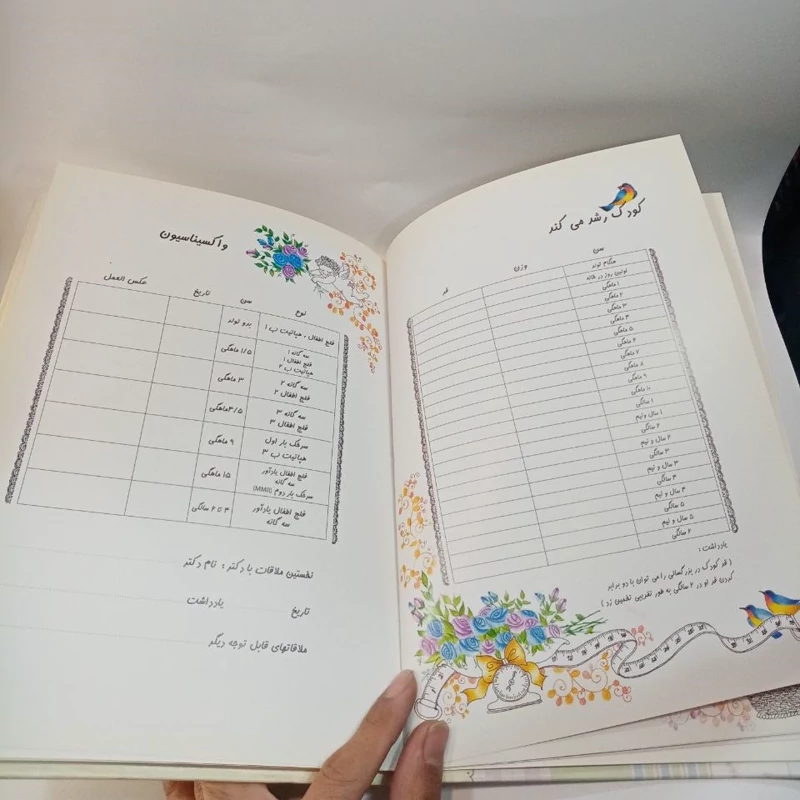 کودک رشد می کند
سن وزن قد
هنگام تولد
اولین روز در خانه
۱ ماهگی
۲ ماهگی
۳ ماهگی
۴ ماهگی
۵ ماهگی
۶ ماهگی
۷ ماهگی
۸ ماهگی
۹ ماهگی
۱۰ ماهگی
۱ سالگی
۱ سال و نیم
۲ سالگی
۲ سال و نیم
۳ سالگی
۳ سال و نیم
۴ سالگی
۴ سال و نیم
۵ سالگی
۵ سال و نیم
۶ سالگی
یادداشت :
( قد کودک در بزرگسالی را می توان با دو برابر
کردن قد او در ۲ سالگی به طور تقریبی تخمین زد )
واکسیناسیون
نوع سن تاریخ عکس العمل
فلج اطفال ، هپاتیت ب ۱ بدو تولد
سه گانه ۱
فلج اطفال ۱
هپاتیت ب ۲
۱/۵ ماهگی
سه گانه ۲
فلج اطفال ۲
۳ ماهگی
سه گانه ۳
فلج اطفال ۳
۴/۵ ماهگی
سرخک بار اول
هپاتیت ب ۳
۹ ماهگی
فلج اطفال یادآور
سه گانه
سرخک بار دوم (MMR)
۱۵ ماهگی
فلج اطفال یادآور
سه گانه
۴ تا ۶ سالگی
نخستین ملاقات با دکتر : نام دکتر
تاریخ یادداشت
ملاقاتهای قابل توجه دیگر